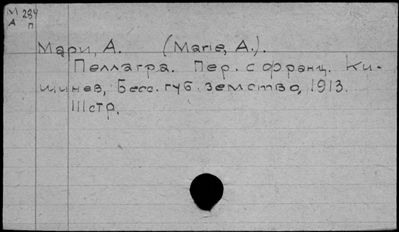 М 284
А п
Мари, А. (Marie, A.).
Пеллагра. Пер. с франц. Ки-
шинев, Бесс. губ. земство, 1913.
111 стр.